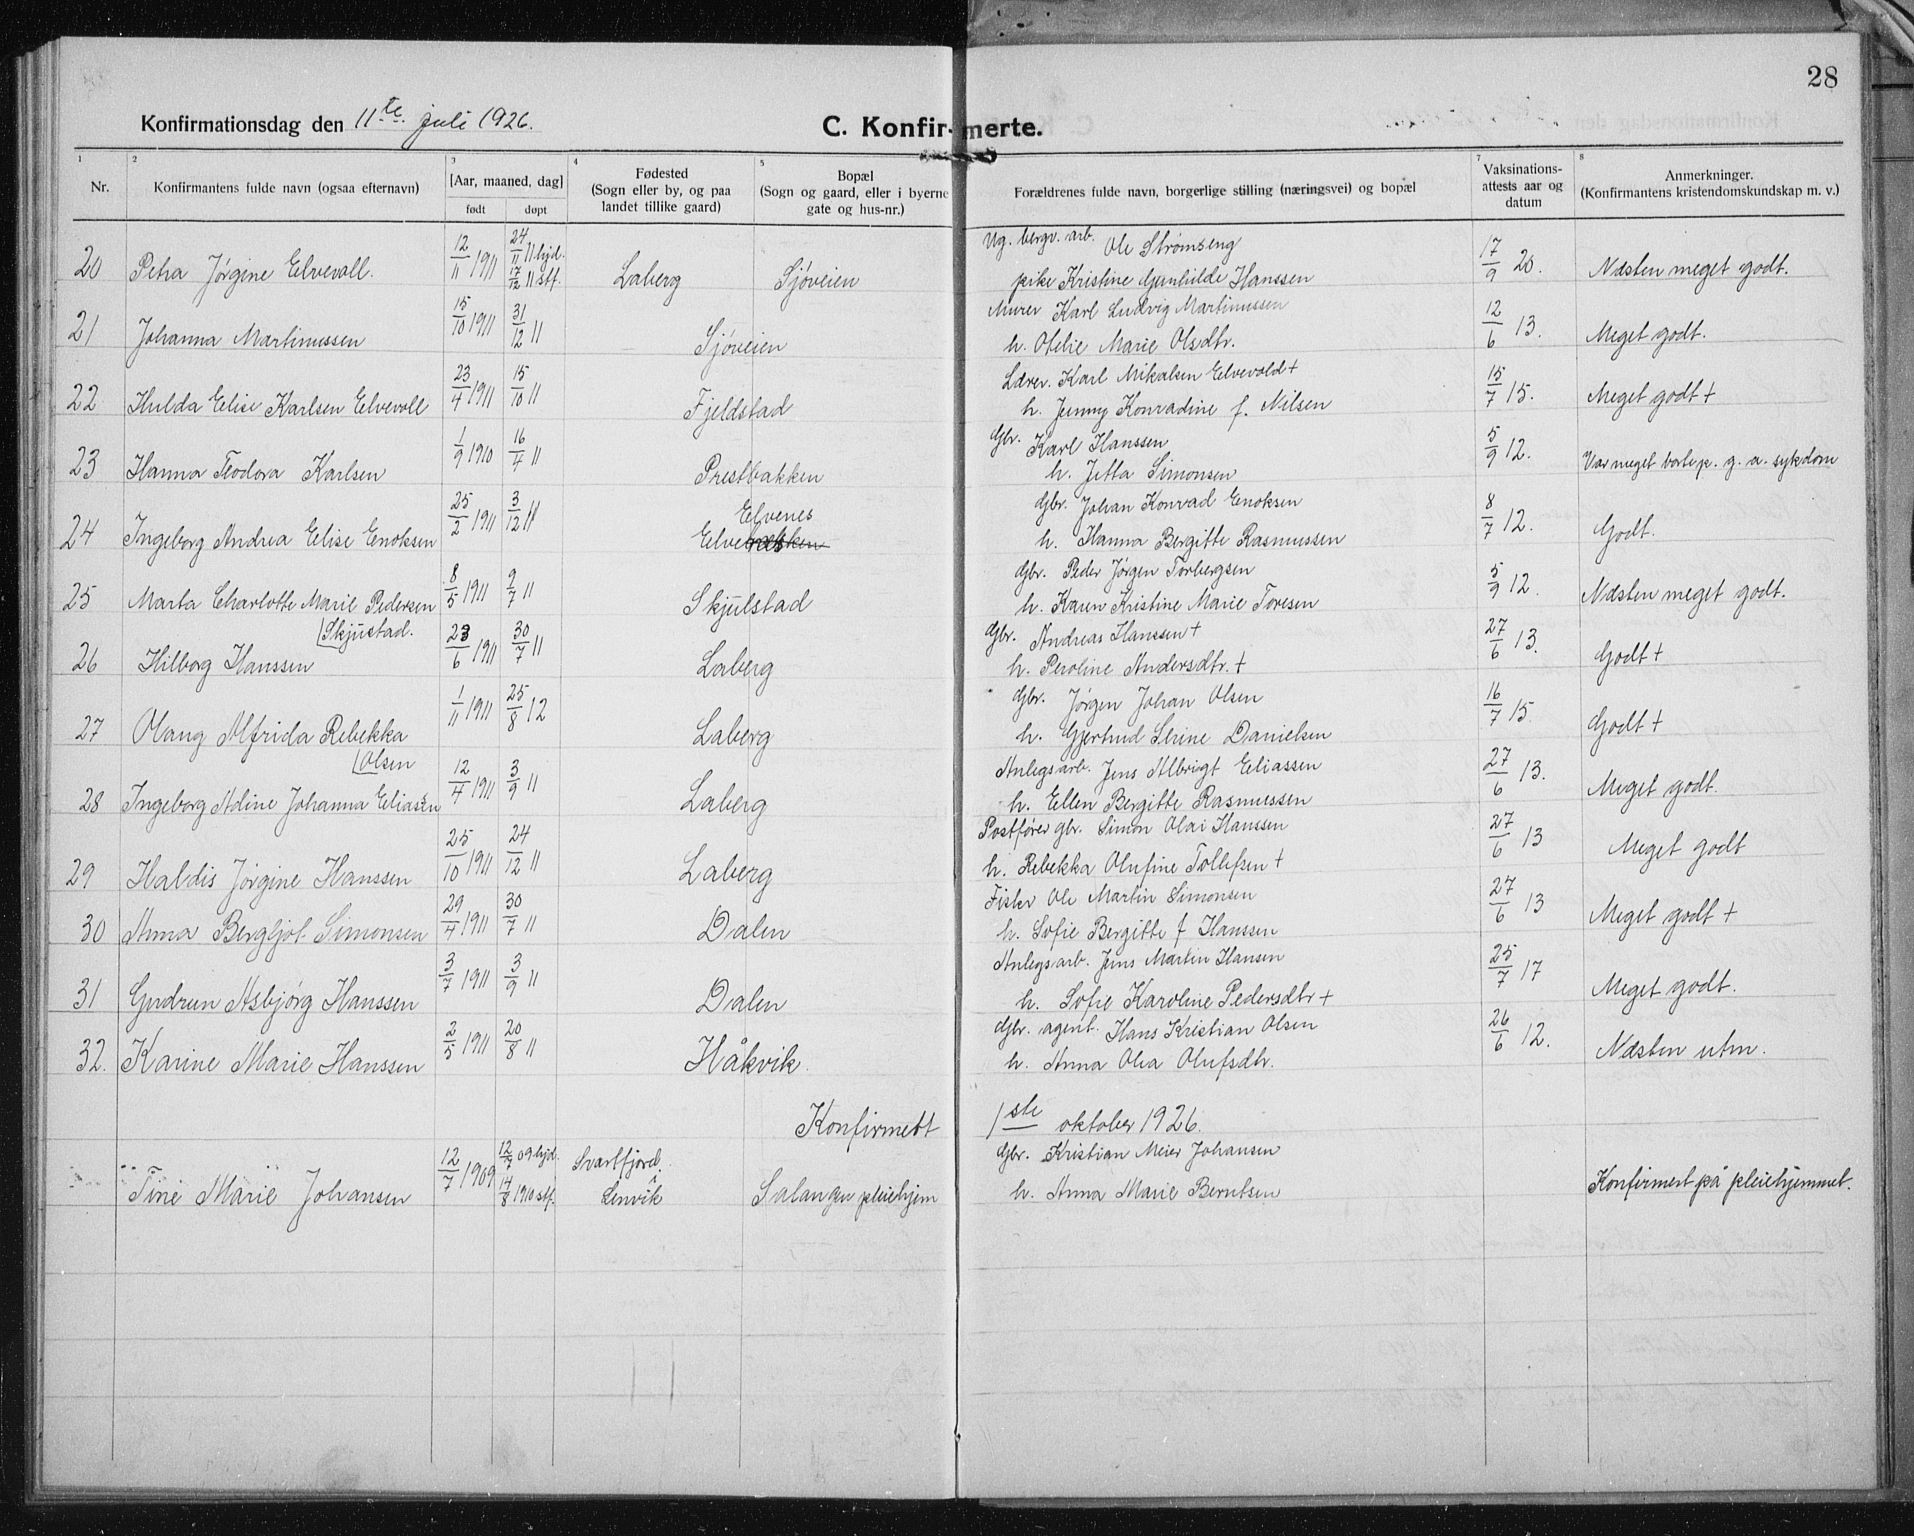 28
Konfirmationsdag den 11te juli 1926.
C. Konfirmerte.
1 2 3 4 5 7 8
Nr.
Konfirmantens fulde navn (ogsaa efternavn)
[Aar, maaned, dag]
født døpt
Fødested
(Sogn eller by, og paa
landet tillike gaard)
Bopæl
(Sogn og gaard, eller i byerne
gate og hus-nr.)
Forældrenes fulde navn, borgerlige stilling (næringsvei) og bopæl
Vaksinations-
attests aar og
datum
Anmerkninger.
(Konfirmantens kristendomskundskap m. v.)
20 Petra Jørgine Elvevoll. 12/11 1911 24/11 11 hjd. 17/12 11 stf. Laberg Sjøveien
Ug. bergv. arb. Ole Strømseng
pike Kristine Gunhilde Hanssen 17/9 20. Næsten meget godt.
21 Johanna Martinussen 15/10 1911 31/12 11 Sjøveien
Murer Karl Ludvig Martinussen
h. Otelie Marie Olsdtr. 12/6 13. Meget godt.
22 Hulda Elise Karlsen Elvevoll 23/4 1911 15/10 11 Fjeldstad
Lærer. Karl Mikalsen Elvevold +
h. Jenny Konradine f. Nilsen 15/7 15. Meget godt +
23 Hanna Teodora Karlsen 1/9 1910 16/4 11 Prestbakken
Gbr. Karl Hanssen
h. Jetta Simonsen 5/9 12. Var meget borte p. g. a. sykdom
24 Ingeborg Andrea Elise Enoksen 25/2 1911 3/12 11 Elvenes
Gbr. Johan Konrad Enoksen
h. Hanna Bergitte Rasmussen 8/7 12. Godt.
25 Marta Charlotte Marie Pedersen 8/5 1911 9/7 11 Skjulstad
[Skjustad.
Gbr. Peder Jørgen Torbergsen
h. Karen Kristine Marie Toresen 5/9 12. Næsten meget godt.
26 Hilborg Hanssen 23/6 1911 30/7 11 Laberg
Gbr. Andreas Hanssen +
h. Peroline Andersdtr. + 27/6 13. Godt +
27 Olaug Alfrida Rebekka 1/11 1911 25/8 12 Laberg
[Olsen
Gbr. Jørgen Johan Olsen
h. Gjertrud Serine Danielsen 16/7 15. Godt +
28 Ingeborg Adine Johanna Eliassen 12/4 1911 3/9 11 Laberg
Anlegsarb. Jens Albrigt Eliassen
h. Ellen Bergitte Rasmussen 27/6 13. Meget godt.
29 Haldis Jørgine Hanssen 25/10 1911 24/12 11 Laberg
Postfører gbr. Simon Olai Hanssen
h. Rebekka Olufine Tollefsen + 27/6 13 Meget godt
30 Anna Bergljot Simonsen 29/4 1911 30/7 11 Dalen
Fisker Ole Martin Simonsen
h. Sofie Bergitte f Hanssen 27/6 13 Meget godt +
31 Gudrun Asbjørg Hanssen 3/7 1911 3/9 11 Dalen
Anlegsarb. Jens Martin Hansen
h. Sofie Karoline Pedersdtr + 25/7 17 Meget godt.
32. Karine Marie Hanssen 2/5 1911 20/8 11 Håkvik.
Gbr. agent. Hans Kristian Olsen
h. Anna Olea Olufsdtr. 26/6 12. Næsten utm.
Konfirmert 1ste oktober 1926.
Tine Marie Johansen 12/7 1909 12/7 09 hjd. 14/8 1910 stf. Svartfjord. Lenvik Salangen pleiehjem
Gbr. Kristian Meier Johansen
h. Anna Marie Berntsen Konfirmert på pleiehjemmet.